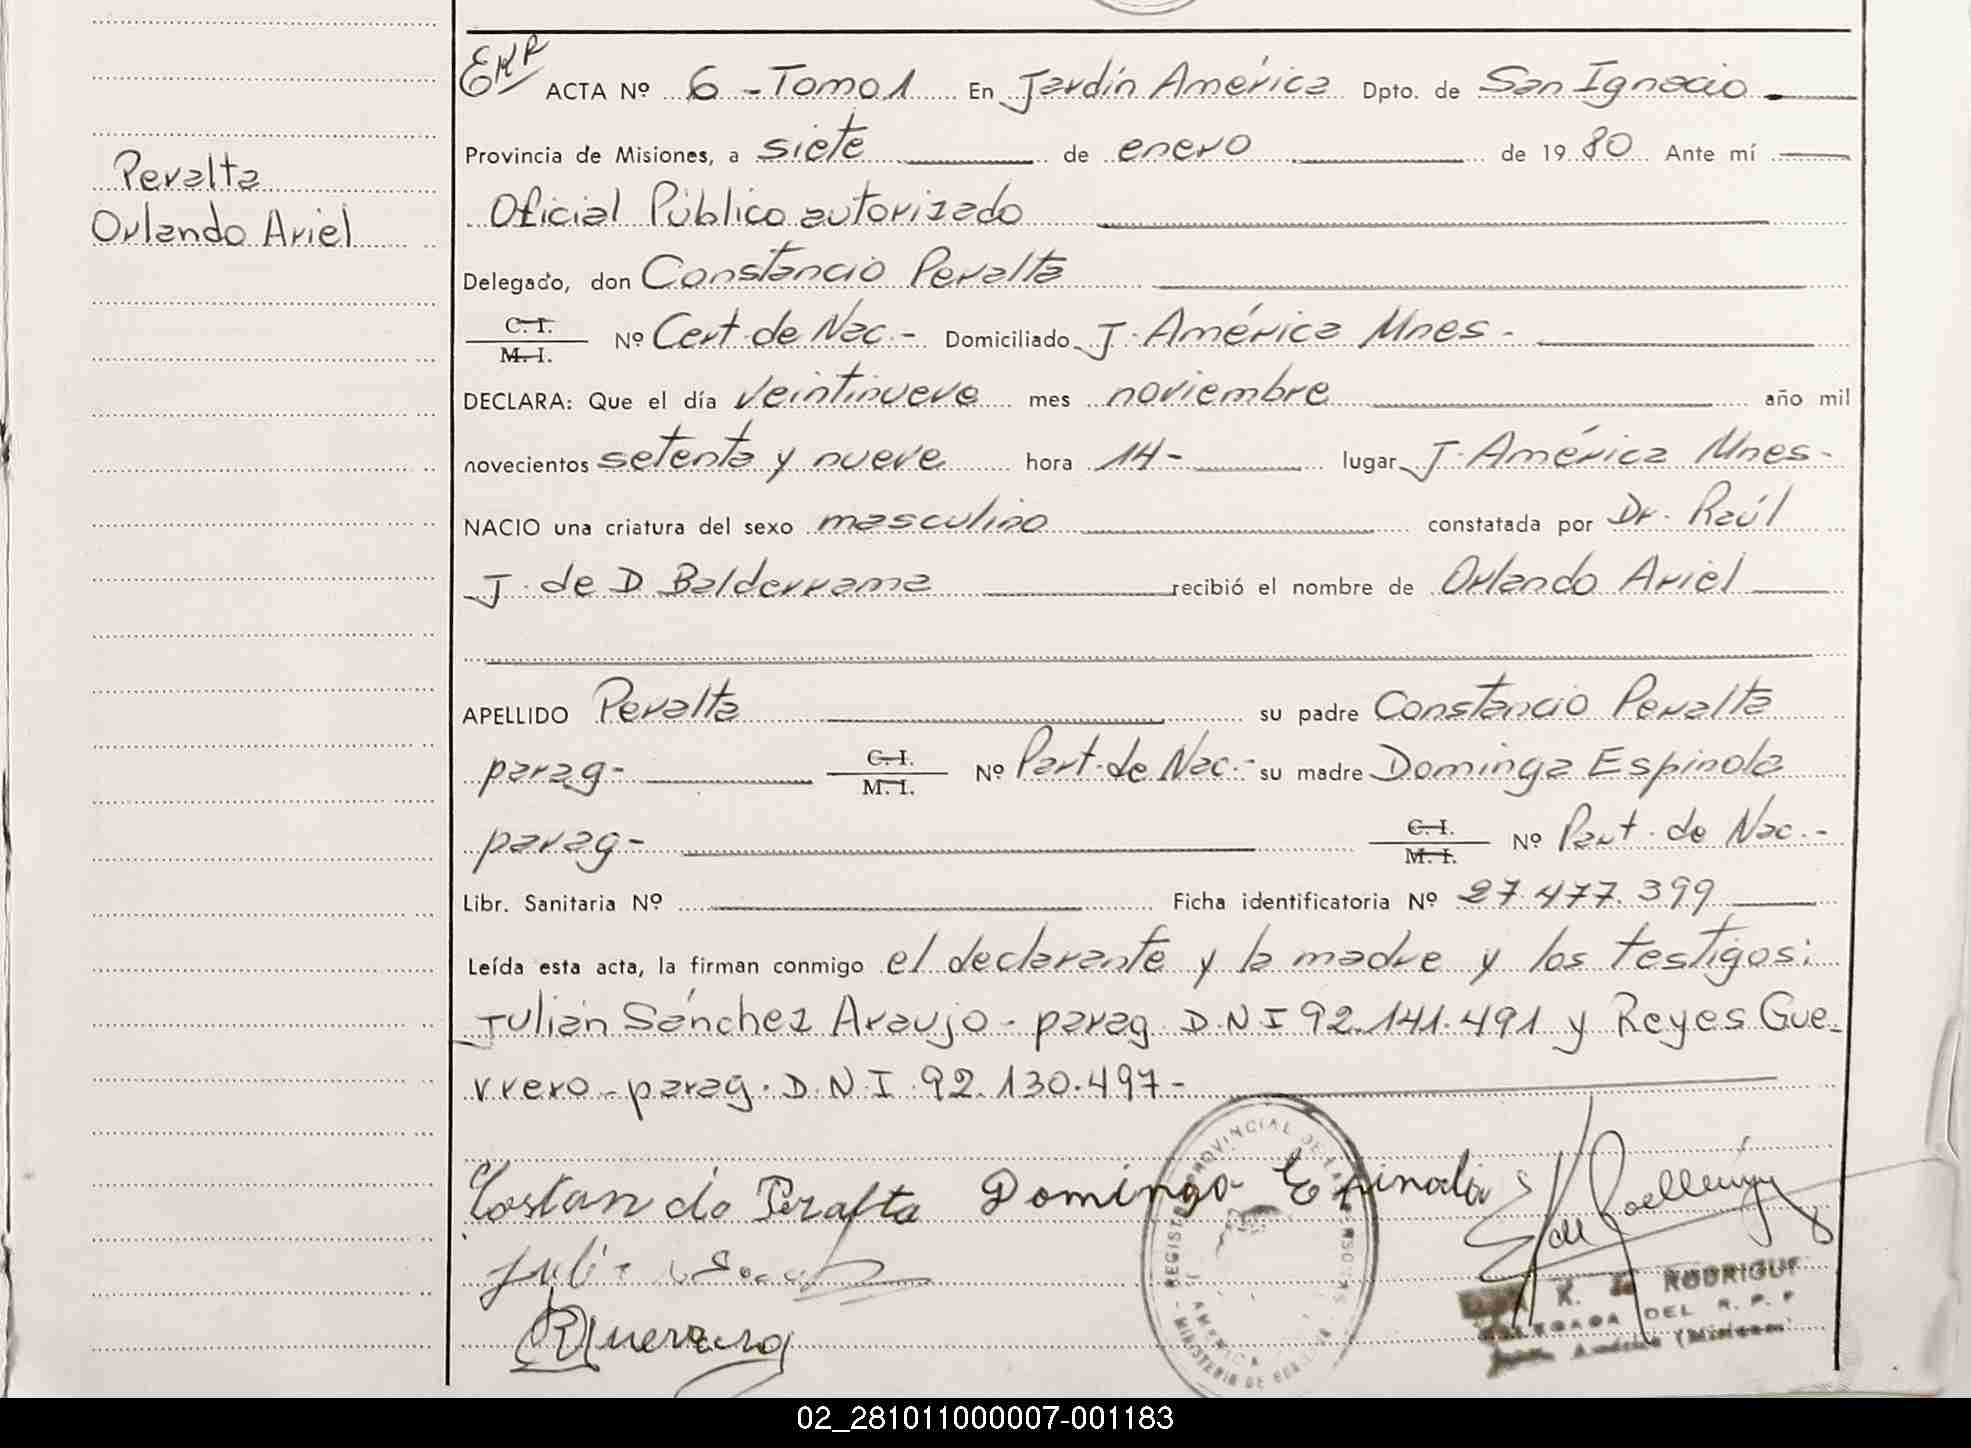 EKP
ACTA Nº 6 - Tomo 1 En Jardín América Dpto. de San Ignacio
Provincia de Misiones, a siete de enero de 1980 Ante mí
Peralta
Orlando Ariel
Oficial Público autorizado
Delegado, don Constancio Peralta
C. I.
M. I.
Nº Cert. de Nac. - Domiciliado J. América Mnes -
DECLARA: Que el día veintinueve mes noviembre año mil
novecientos setenta y nueve hora 14 - lugar J. América Mnes -
NACIO una criatura del sexo masculino constatada por Dr. Raúl
J. de D Balderrama recibió el nombre de Orlando Ariel
APELLIDO Peralta su padre Constancio Peralta
parag - C. I.
M. I. Nº Part. de Nac. - su madre Dominga Espinola
parag - C. I.
M. I. Nº Part. de Nac. -
Libr. Sanitaria Nº Ficha identificatoria Nº 27.477.399
Leída esta acta, la firman conmigo el declarante y la madre y los testigos:
Julián Sánchez Araujo - parag. D.N.I 92.141.491 y Reyes Gue-
rrero - parag. D.N.I. 92.130.497 -
Costancio Peralta Dominga Espinola
RGuerrero
REGISTRO PROVINCIAL DE LAS PERSONAS
AMERICA
MINISTERIO DE
K. de RODRIGUE
DELEGADA DEL R. P. P
Jardín América (Misiones)
02_281011000007-001183